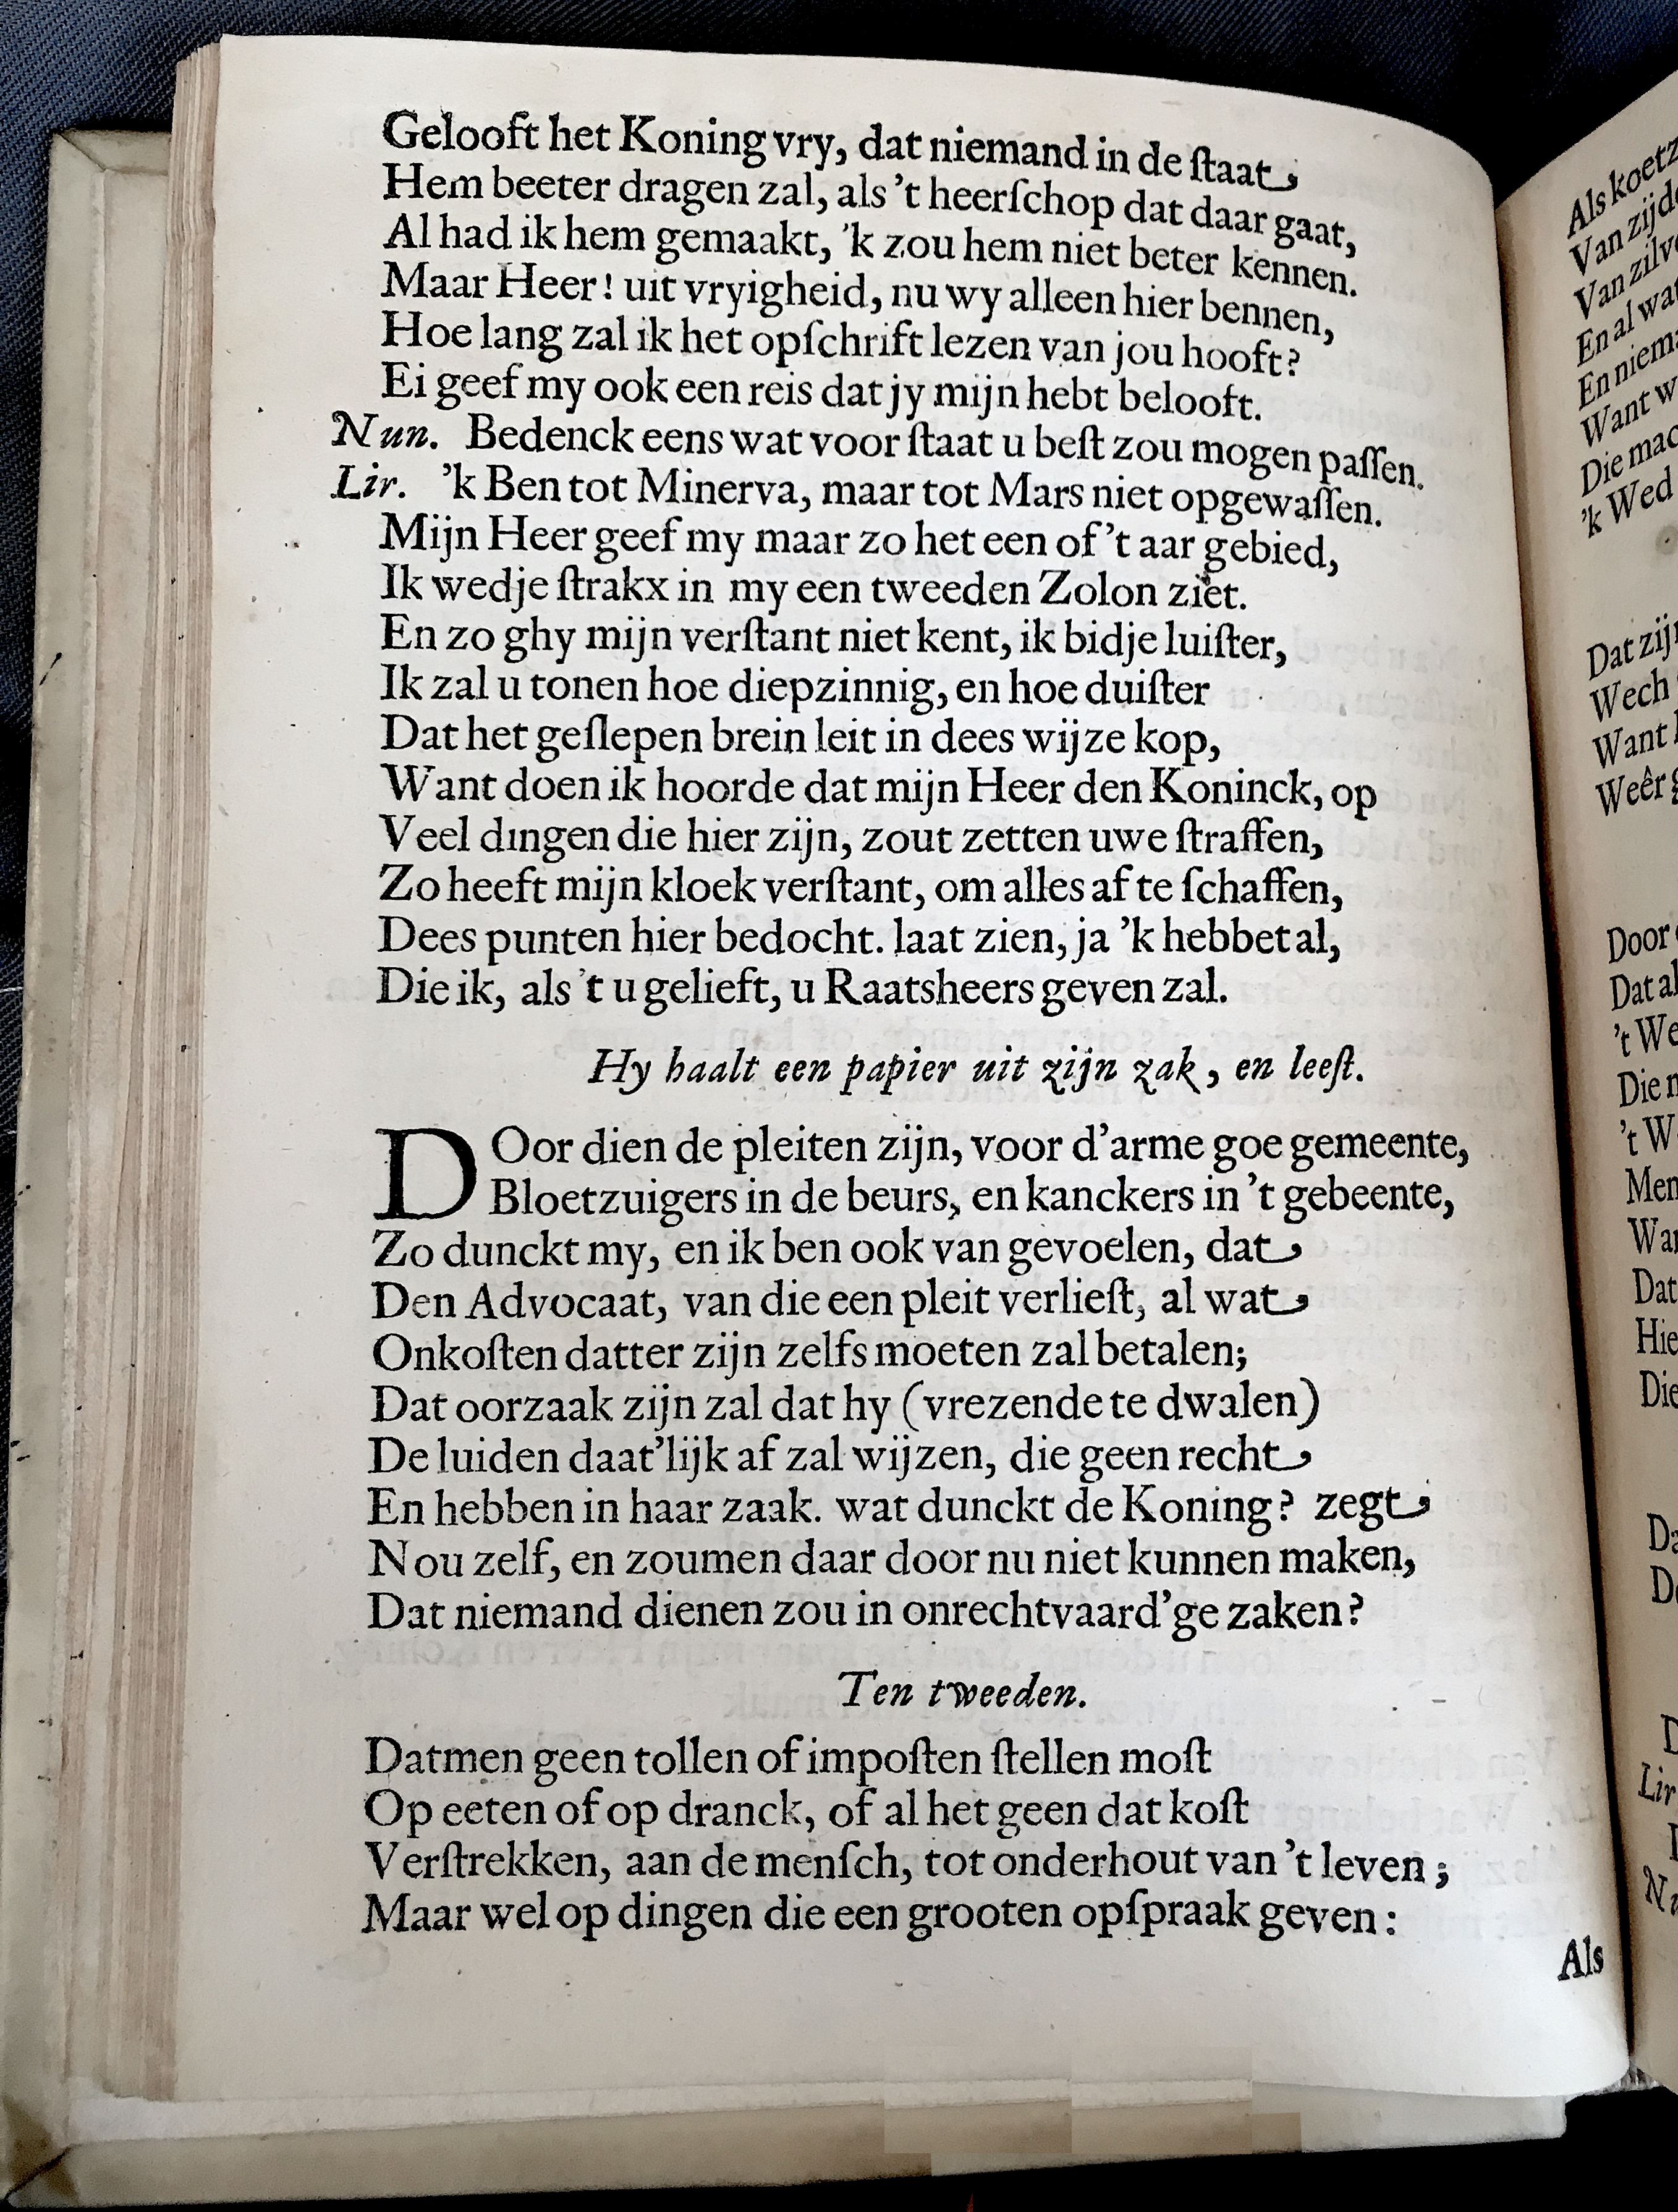 Gelooft het Koning vry, dat niemand in de ſtaat
Hem beeter dragen zal, als 't heerſchop dat daar gaat,
Al had ik hem gemaakt, 'k zou hem niet beter kennen.
Maar Heer! uit vryigheid, nu wy alleen hier bennen,
Hoe lang zal ik het opſchrift lezen van jou hooft?
Ei geef my ook een reis dat jy mijn hebt belooft.
Nun. Bedenck eens wat voor ſtaat u beſt zou mogen paſſen.
Lir. 'k Ben tot Minerva, maar tot Mars niet opgewaſſen.
Mijn Heer geef my maar zo het een of 't aar gebied,
Ik wedje ſtrakx in my een tweeden Zolon ziet.
En zo ghy mijn verſtant niet kent, ik bidje luiſter,
Ik zal u tonen hoe diepzinnig, en hoe duiſter
Dat het geſlepen brein leit in dees wijze kop,
Want doen ik hoorde dat mijn Heer den Koninck, op
Veel dingen die hier zijn, zout zetten uwe ſtraffen,
Zo heeft mijn kloek verſtant, om alles af te ſchaffen,
Dees punten hier bedocht. laat zien, ja 'k hebbet al,
Die ik, als 't u gelieft, u Raatsheers geven zal.
Hy haalt een papier uit zijn zak, en leeſt.
DOor dien de pleiten zijn, voor d'arme goe gemeente,
Bloetzuigers in de beurs, en kanckers in 't gebeente,
Zo dunckt my, en ik ben ook van gevoelen, dat
Den Advocaat, van die een pleit verlieſt, al wat
Onkoſten datter zijn zelfs moeten zal betalen;
Dat oorzaak zijn zal dat hy (vrezende te dwalen)
De luiden daat'lijk af zal wijzen, die geen recht
En hebben in haar zaak. wat dunckt de Koning? zegt
Nou zelf, en zoumen daar door nu niet kunnen maken,
Dat niemand dienen zou in onrechtvaard'ge zaken?
Ten tweeden.
Datmen geen tollen of impoſten ſtellen moſt
Op eeten of op dranck, of al het geen dat koſt
Verſtrekken, aan de menſch, tot onderhout van 't leven;
Maar wel op dingen die een grooten opſpraak geven:
Als
Als
Van
Van
En al
En
Want
Die
'k Wed
Dat
Wech
Want
Weêr
Door
Dat
't
Die
't
Dat
Hie
Die
Lir